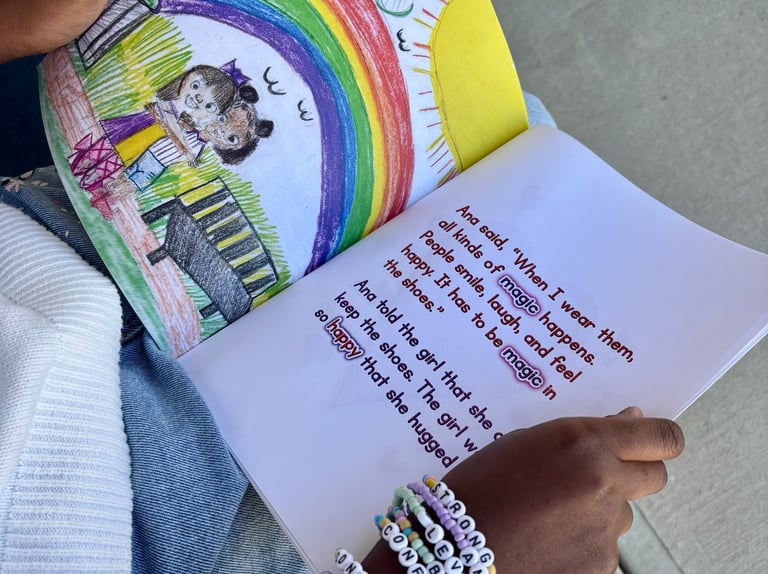 Ana said, "When I wear them,
all kinds of magic happens.
People smile, laugh, and feel
happy. It has to be magic in
the shoes."
Ana told the girl that she
keep the shoes. The girl
so happy that she hugged
STRONG
CONF